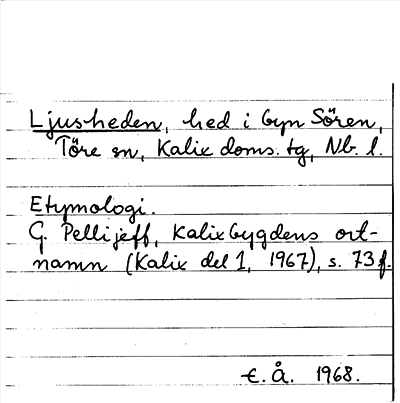 Ljusheden, hed i byn Sören,
Töre sn, Kalix doms. tg, Nb. l.
Etymologi.
G. Pellijeff, Kalixbygdens ort-
namn (Kalix del 1, 1967), s. 73 f.
E. Å. 1968.